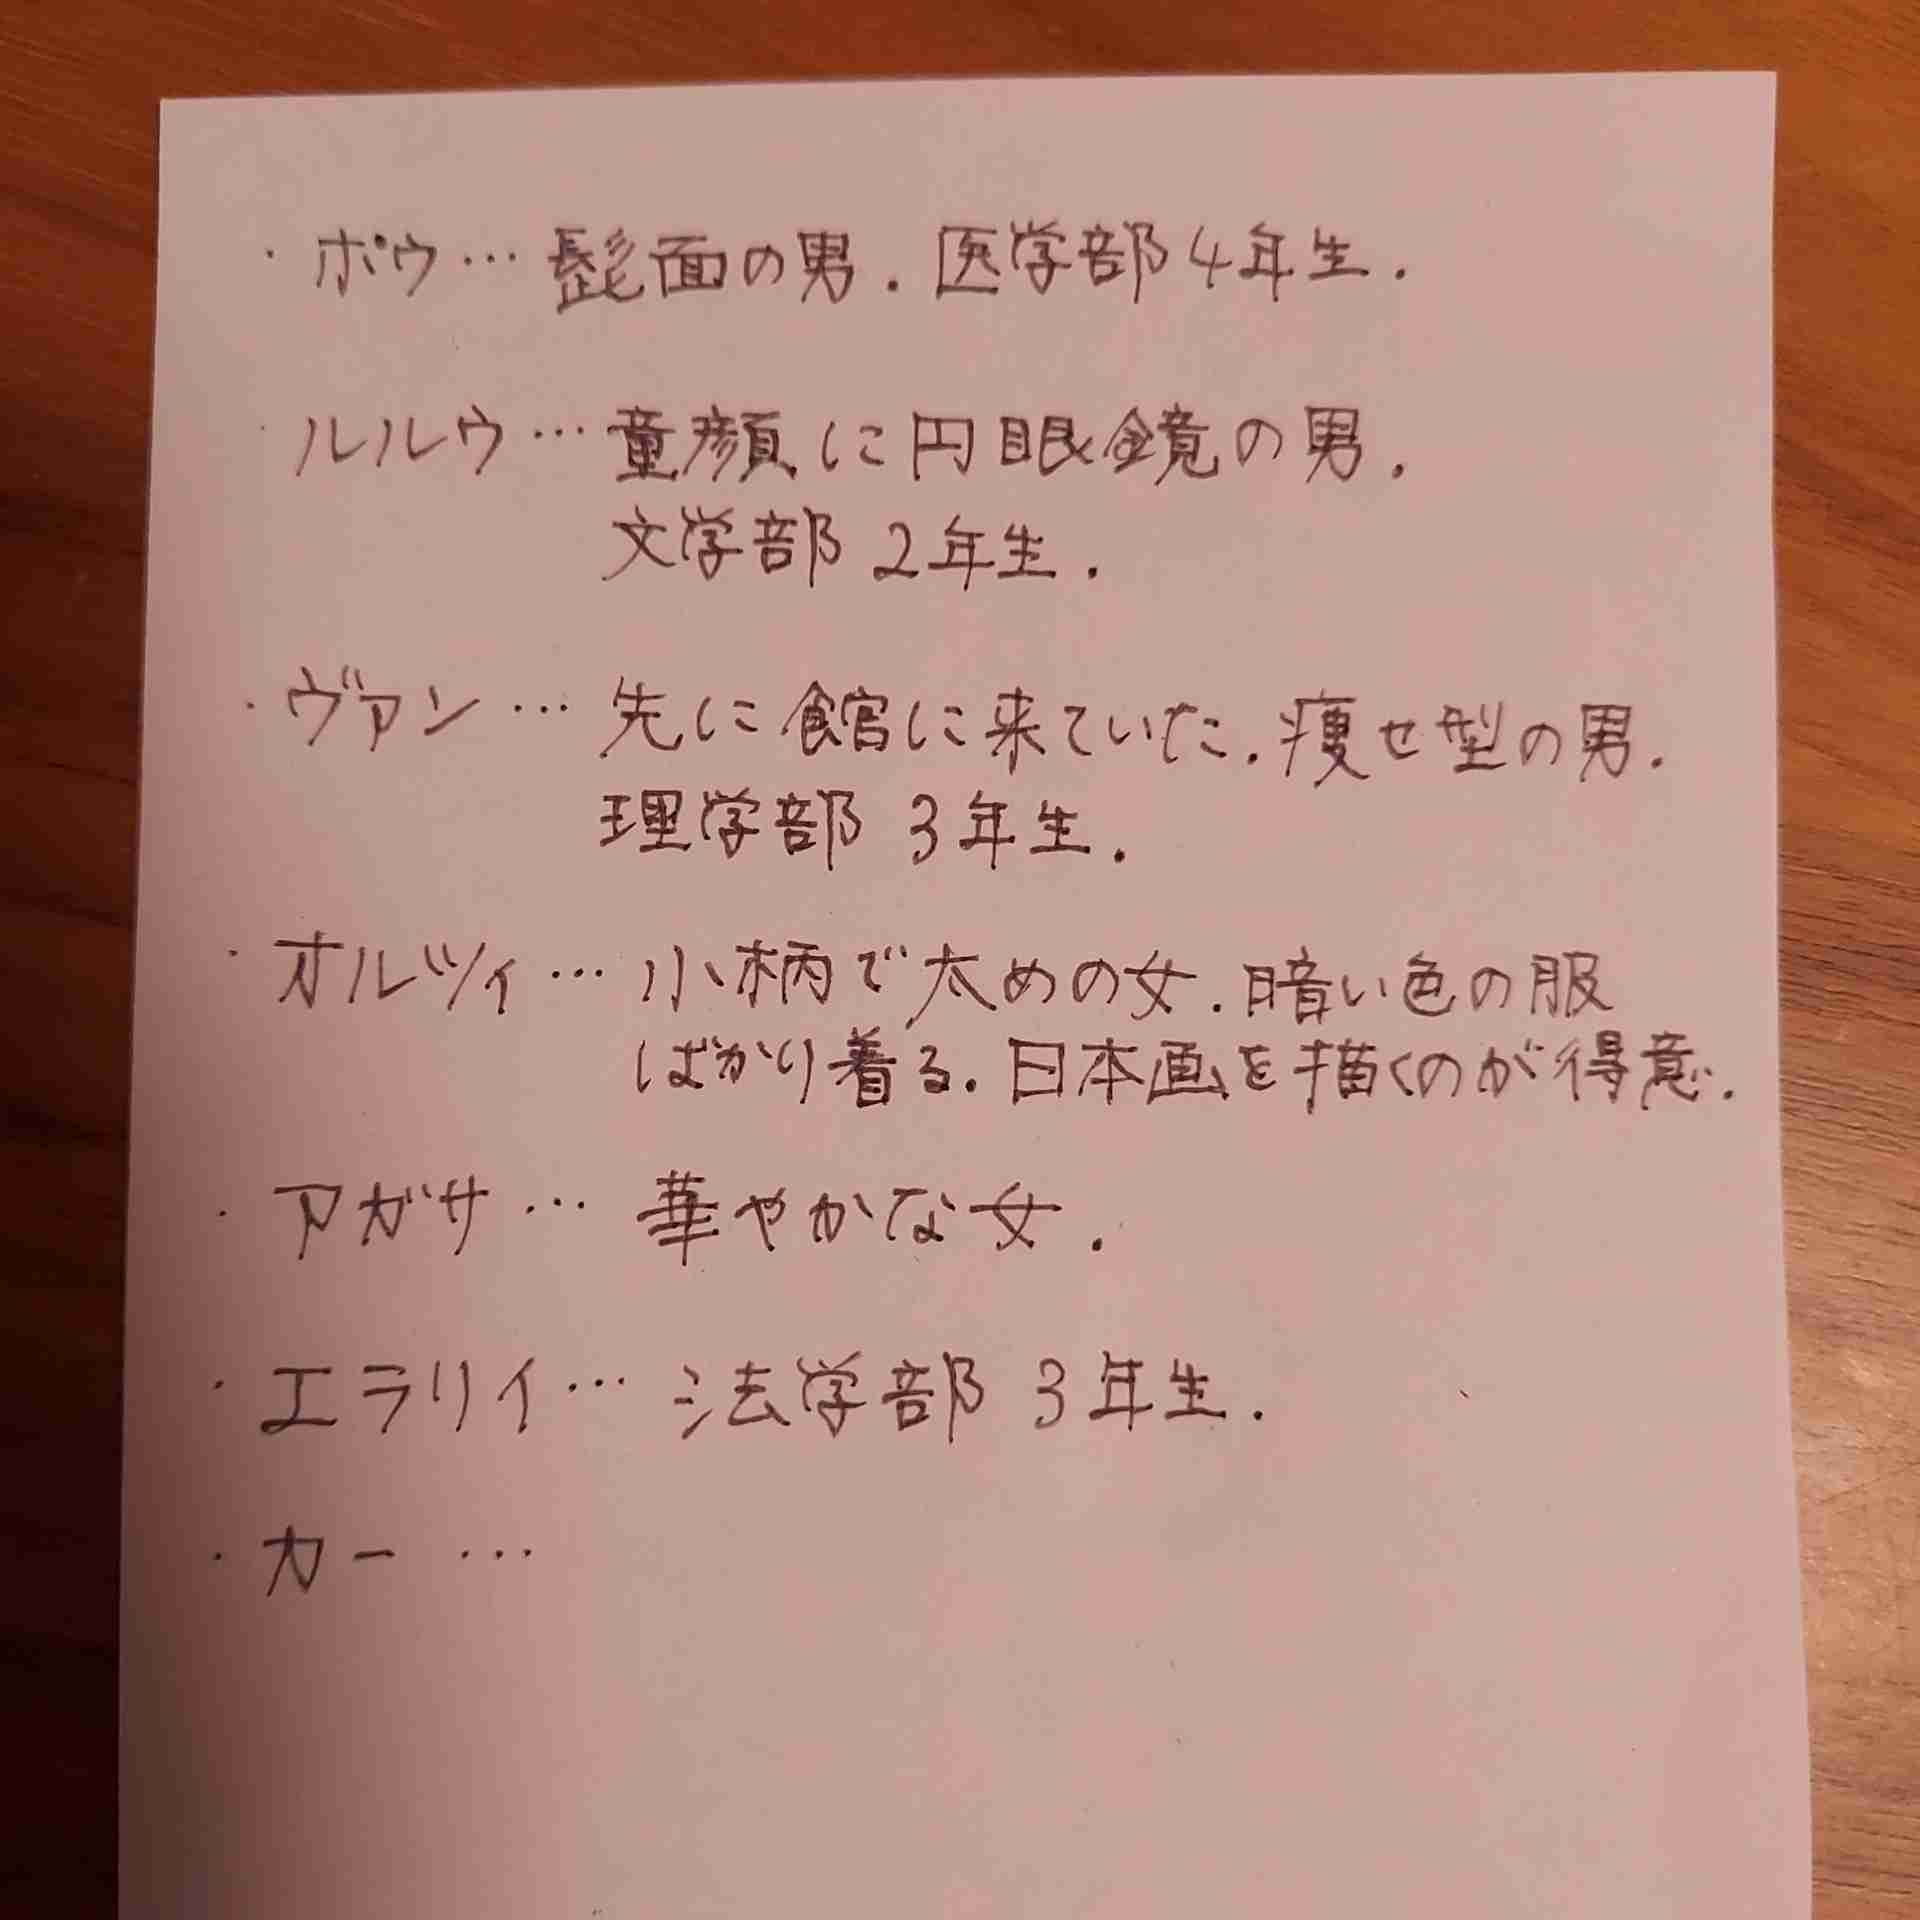 ・ポウ…髭面の男.医学部4年生.
・ルルウ…童顔に円眼鏡の男.
文学部2年生.
・ヴァン…先に館に来ていた.痩せ型の男.
理学部3年生.
・オルツィ…小柄で太めの女.暗い色の服
ばかり着る.日本画を描くのが得意.
・アガサ…華やかな女.
・エラリイ…法学部3年生.
・カー…